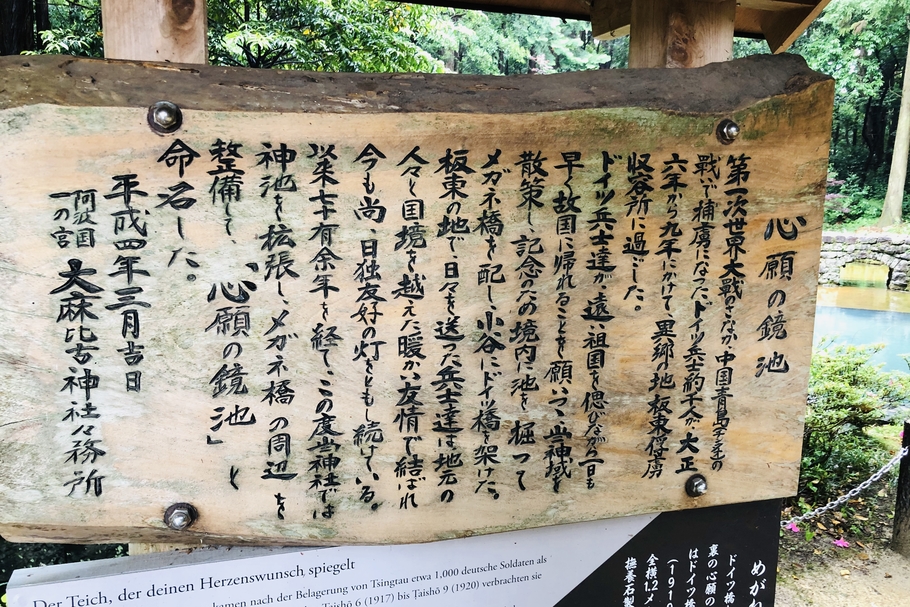 心願の鏡池
第一次世界大戦のさなか、中国青島
戦いで捕虜になったドイツ兵士約千人が、大正
六年から九年にかけて、異郷の地板東俘虜
収容所に過ごした。
ドイツ兵士達が、遠い祖国を偲びながら一日も
早く故国に帰れることを願いつつ、当神域を
散策し、記念のため境内に池を掘って
メガネ橋を配し、小谷にドイツ橋を架けた。
板東の地で、日々を送った兵士達は地元の
人々と国境を越えた暖かい友情で結ばれ
今も尚、日独友好の灯をともし続けている。
以来七十有余年を経て、この度当神社では
神池を拡張し、メガネ橋の周辺を
整備して、「心願の鏡池」と
命名した。
平成四年三月吉日
阿波国
一の宮
大麻比古神社々務所
Der Teich, der deinen Herzenswunsch spiegelt
kamen nach der Belagerung von Tsingtau etwa 1,000 deutsche Soldaten als
Taishō 6 (1917) bis Taishō 9 (1920) verbrachten sie
めがね
ドイツ橋
裏の心願の
はドイツ橋
(1919
全横1.2メ
撫養石製